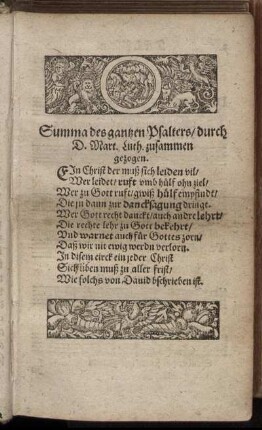 Summa des gantzen Psalters/durch
D. Mart. Luth. zusammen
gezogen.
EIn Christ der muß sich leiden vil/
Wer leidet/ rufft vmb hülf ohn ziel/
Wer zu Gott ruft: gwiß hülf empfindt/
Die jn dann zur dancksagung dringt.
Wer Gott recht danckt/auch andre lehrt/
Die rechte lehr zu Gott bekehrt/
Vnd warnet auch für Gottes zorn/
Daß wir nit ewig werdn verlorn.
In disem circk ein jeder Christ
Sich üben muß zu aller frist/
Wie solchs von Dauid bschrieben ist.